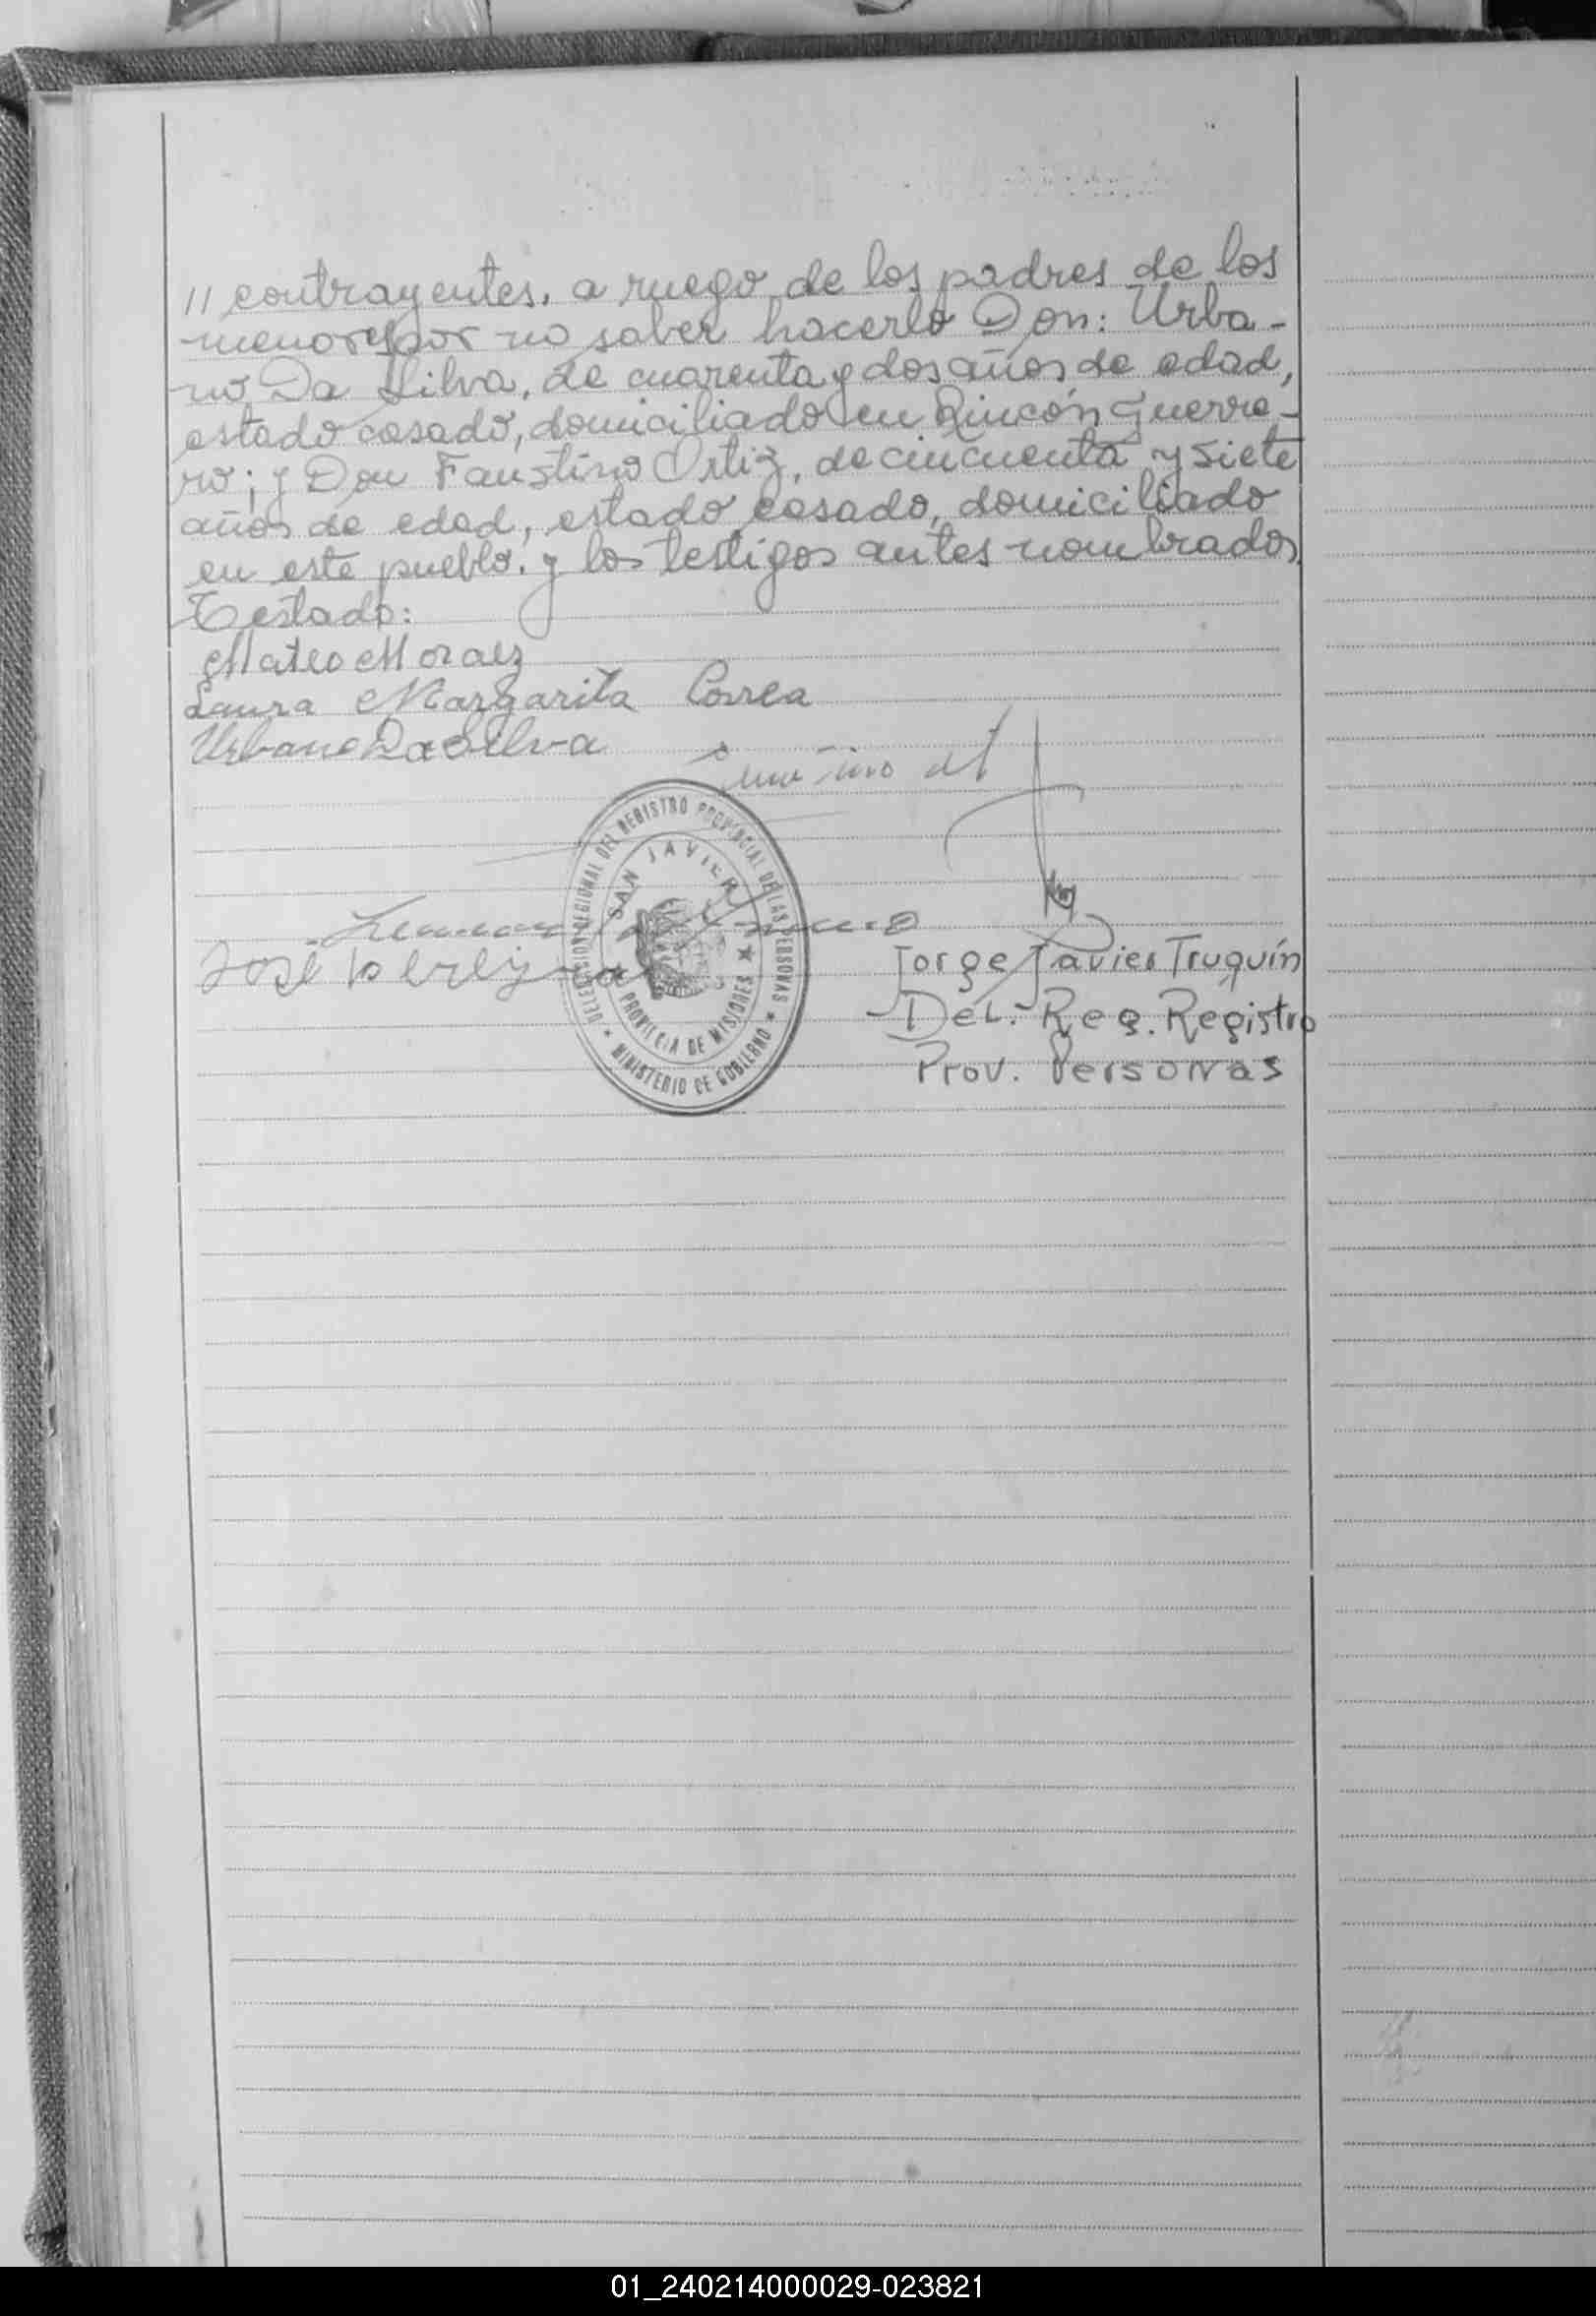 // contrayentes, a ruego de los padres de los
menores por no saber hacerlo Don: Urba-
no Da Silva, de cuarenta y dos años de edad,
estado casado, domiciliado en Rincón Guerre-
ro; y Don Faustino Ortiz, de cincuenta y siete
años de edad, estado casado, domiciliado
en este pueblo. y los testigos antes nombrados.
Testado:
Mateo Moraez
Laura Margarita Correa
Urbano Da Silva
DELEGACION REGIONAL DEL REGISTRO PROVINCIAL DE LAS PERSONAS
SAN JAVIER
PROVINCIA DE MISIONES
MINISTERIO DE GOBIERNO
José Pereyra
Jorge Javier Truquín
Del. Reg. Registro
Prov. Personas
01_240214000029-023821